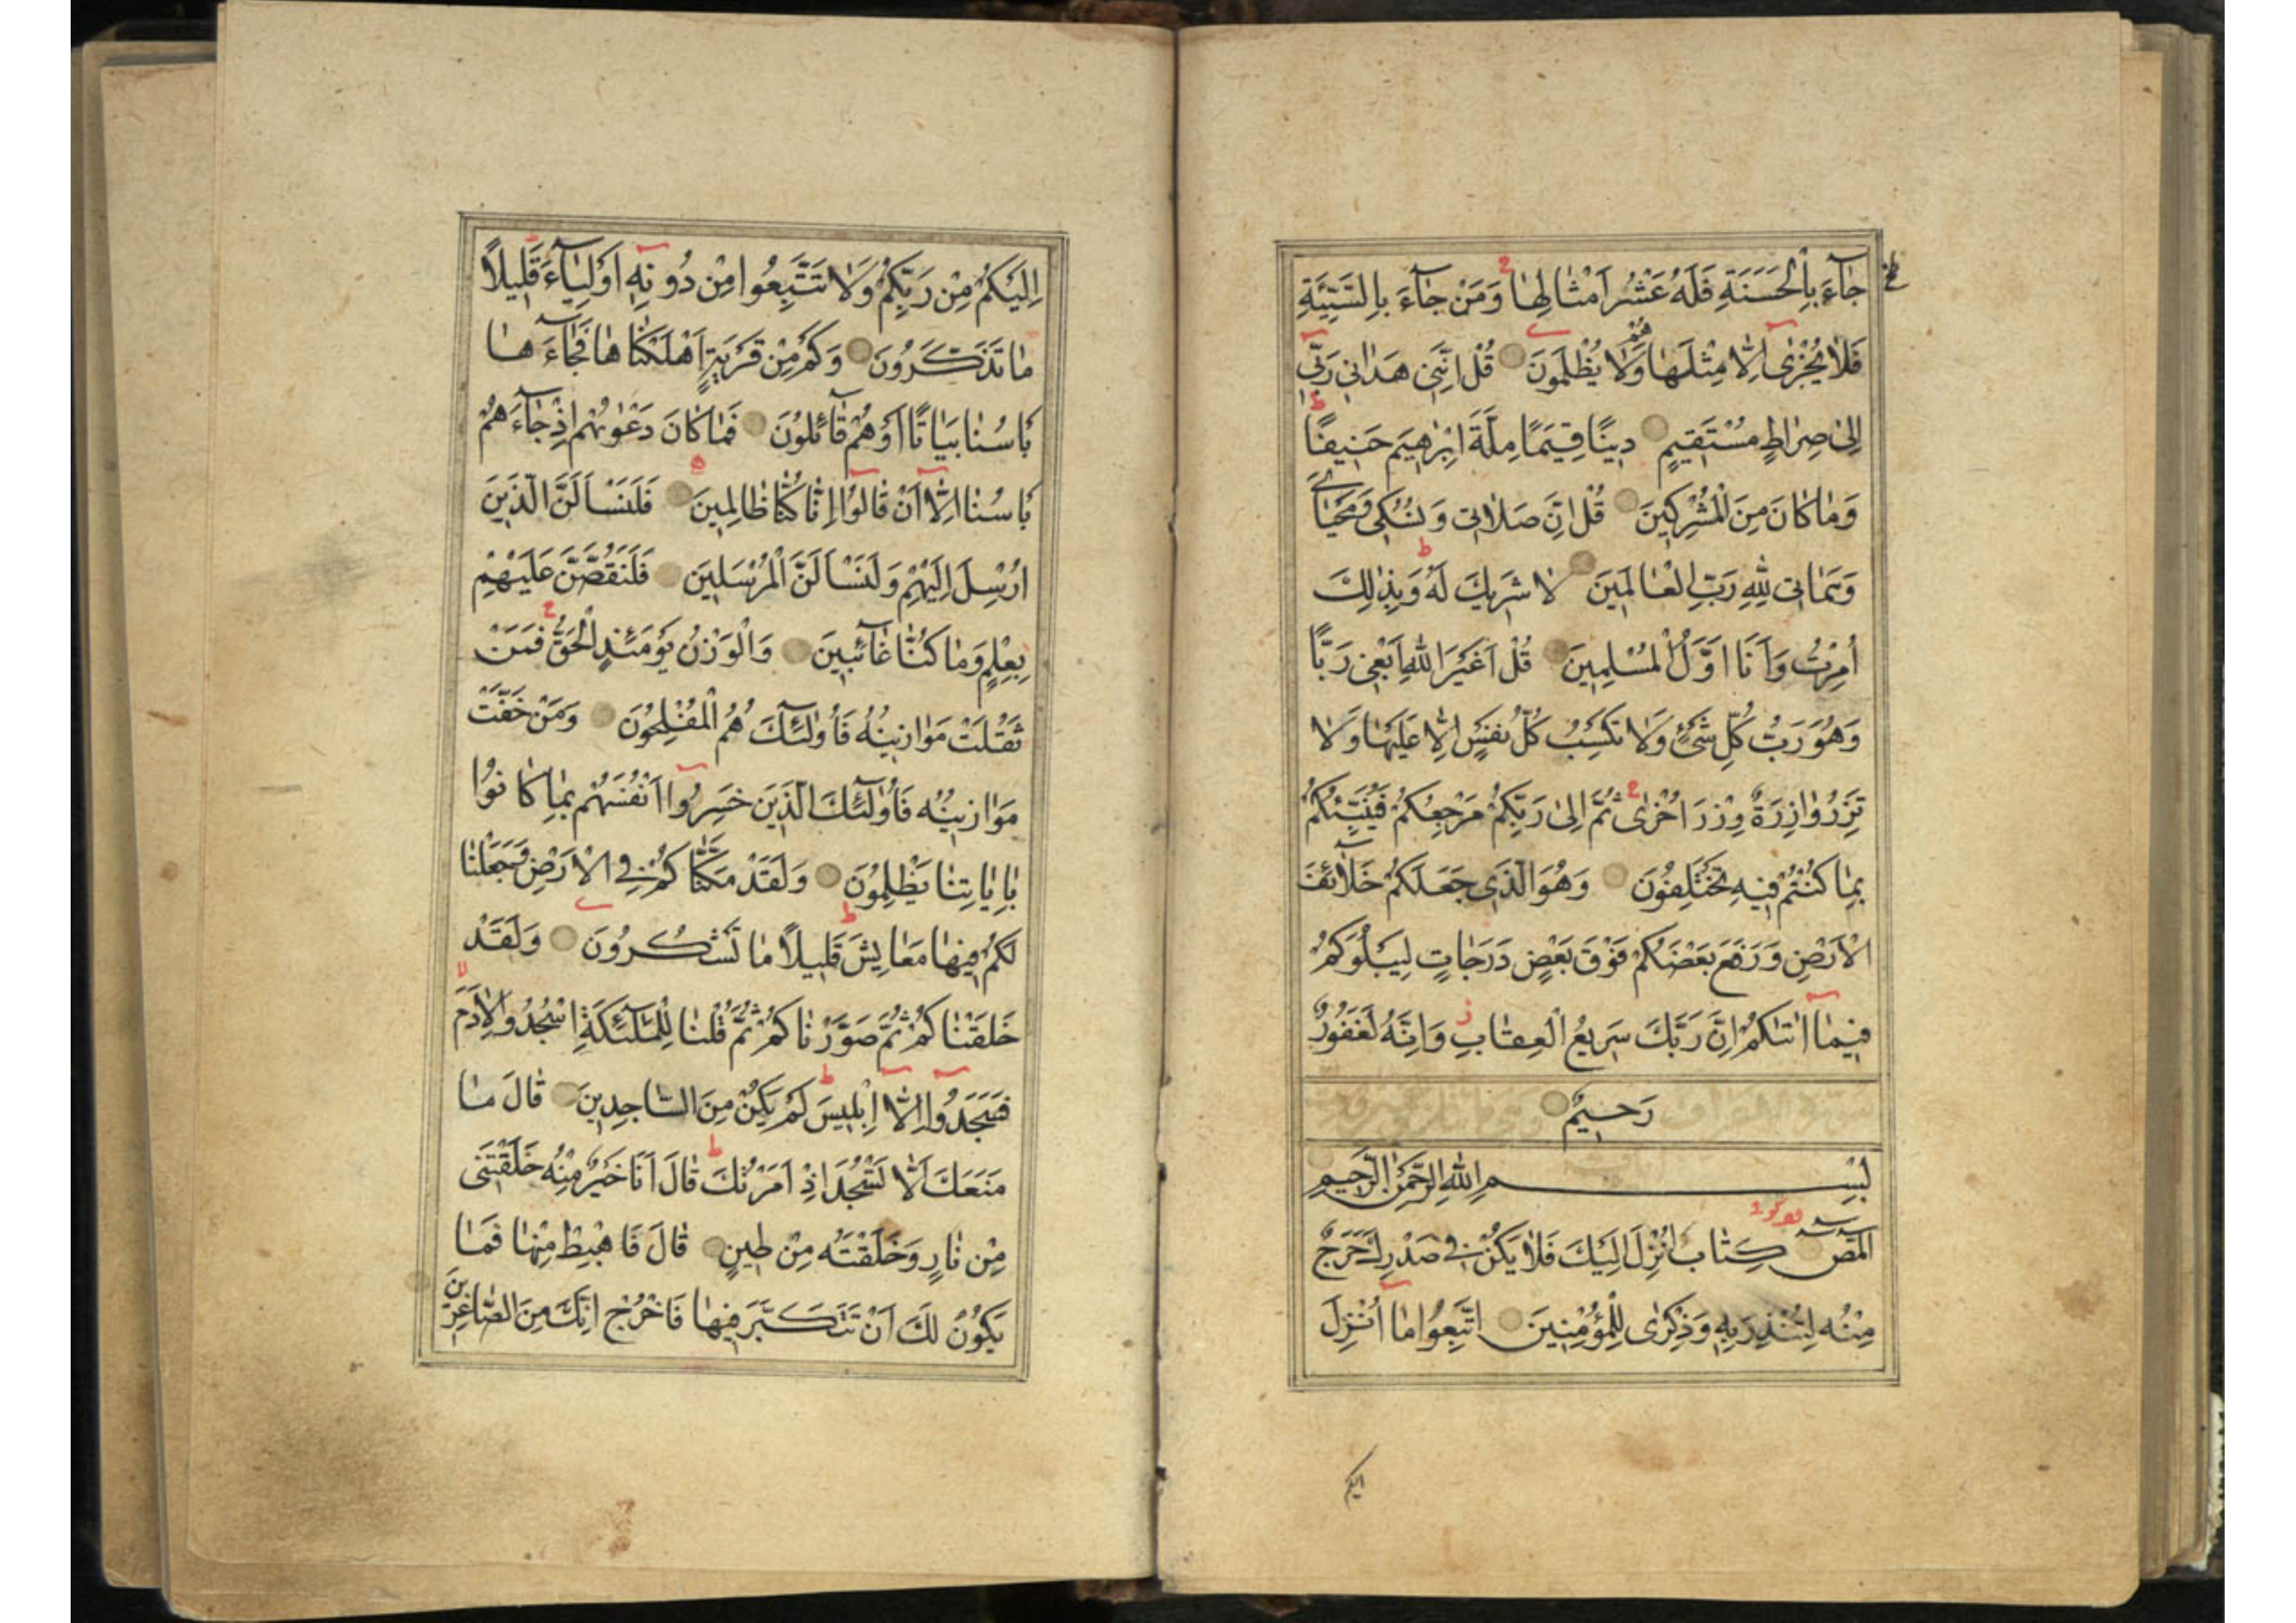 جٰآءَ بِالْحَسَنَةِ فَلَهُ عَشْرُ اَمْثٰالِهٰا وَمَنْ جٰآءَ بِالسَّيِّئَةِ
فَلٰا يُجْزٰى اِلّٰا مِثْلَهٰا وَهُمْ لٰا يُظْلَمُونَ قُلْ اِنَّنِى هَدٰانِى رَبِّى
اِلىٰ صِرٰاطٍ مُسْتَقِيمٍ دِينًا قِيَمًا مِلَّةَ اِبْرٰهِيمَ حَنِيفًا
وَمٰا كٰانَ مِنَ الْمُشْرِكِينَ قُلْ اِنَّ صَلٰاتِى وَنُسُكِى وَمَحْيٰاىَ
وَمَمٰاتِى لِلّٰهِ رَبِّ الْعٰالَمِينَ لٰا شَرِيكَ لَهُ وَبِذٰلِكَ
اُمِرْتُ وَاَنَا اَوَّلُ الْمُسْلِمِينَ قُلْ اَغَيْرَ اللّٰهِ اَبْغِى رَبًّا
وَهُوَ رَبُّ كُلِّ شَىْءٍ وَلٰا تَكْسِبُ كُلُّ نَفْسٍ اِلّٰا عَلَيْهٰا وَلٰا
تَزِرُ وٰازِرَةٌ وِزْرَ اُخْرٰى ثُمَّ اِلىٰ رَبِّكُمْ مَرْجِعُكُمْ فَيُنَبِّئُكُمْ
بِمٰا كُنْتُمْ فِيهِ تَخْتَلِفُونَ وَهُوَ الَّذِى جَعَلَكُمْ خَلٰآئِفَ
الْاَرْضِ وَرَفَعَ بَعْضَكُمْ فَوْقَ بَعْضٍ دَرَجٰاتٍ لِيَبْلُوَكُمْ
فِيمٰآ اٰتٰىكُمْ اِنَّ رَبَّكَ سَرِيعُ الْعِقٰابِ وَاِنَّهُ لَغَفُورٌ
رَحِيمٌ
بِسْمِ اللّٰهِ الرَّحْمٰنِ الرَّحِيمِ
الٓمٓصٓ كِتٰابٌ اُنْزِلَ اِلَيْكَ فَلٰا يَكُنْ فِى صَدْرِكَ حَرَجٌ
مِنْهُ لِتُنْذِرَ بِهِ وَذِكْرٰى لِلْمُؤْمِنِينَ اِتَّبِعُوا مٰا اُنْزِلَ
اليكم
اِلَيْكُمْ مِنْ رَبِّكُمْ وَلٰا تَتَّبِعُوا مِنْ دُونِهِ اَوْلِيٰآءَ قَلِيلًا
مٰا تَذَكَّرُونَ وَكَمْ مِنْ قَرْيَةٍ اَهْلَكْنٰاهٰا فَجٰآءَهٰا
بَاْسُنٰا بَيٰاتًا اَوْ هُمْ قٰآئِلُونَ فَمٰا كٰانَ دَعْوٰىهُمْ اِذْ جٰآءَهُمْ
بَاْسُنٰا اِلّٰآ اَنْ قٰالُوٓا اِنّٰا كُنّٰا ظٰالِمِينَ فَلَنَسْـَٔلَنَّ الَّذِينَ
اُرْسِلَ اِلَيْهِمْ وَلَنَسْـَٔلَنَّ الْمُرْسَلِينَ فَلَنَقُصَّنَّ عَلَيْهِمْ
بِعِلْمٍ وَمٰا كُنّٰا غٰآئِبِينَ وَالْوَزْنُ يَوْمَئِذٍ الْحَقُّ فَمَنْ
ثَقُلَتْ مَوٰازِينُهُ فَاُولٰٓئِكَ هُمُ الْمُفْلِحُونَ وَمَنْ خَفَّتْ
مَوٰازِينُهُ فَاُولٰٓئِكَ الَّذِينَ خَسِرُوٓا اَنْفُسَهُمْ بِمٰا كٰانُوا
بِاٰيٰاتِنٰا يَظْلِمُونَ وَلَقَدْ مَكَّنّٰاكُمْ فِى الْاَرْضِ وَجَعَلْنٰا
لَكُمْ فِيهٰا مَعٰايِشَ قَلِيلًا مٰا تَشْكُرُونَ وَلَقَدْ
خَلَقْنٰاكُمْ ثُمَّ صَوَّرْنٰاكُمْ ثُمَّ قُلْنٰا لِلْمَلٰٓئِكَةِ اسْجُدُوا لِاٰدَمَ
فَسَجَدُوٓا اِلّٰآ اِبْلِيسَ لَمْ يَكُنْ مِنَ السّٰاجِدِينَ قٰالَ مٰا
مَنَعَكَ اَلّٰا تَسْجُدَ اِذْ اَمَرْتُكَ قٰالَ اَنَا خَيْرٌ مِنْهُ خَلَقْتَنِى
مِنْ نٰارٍ وَخَلَقْتَهُ مِنْ طِينٍ قٰالَ فَاهْبِطْ مِنْهٰا فَمٰا
يَكُونُ لَكَ اَنْ تَتَكَبَّرَ فِيهٰا فَاخْرُجْ اِنَّكَ مِنَ الصّٰاغِرِينَ